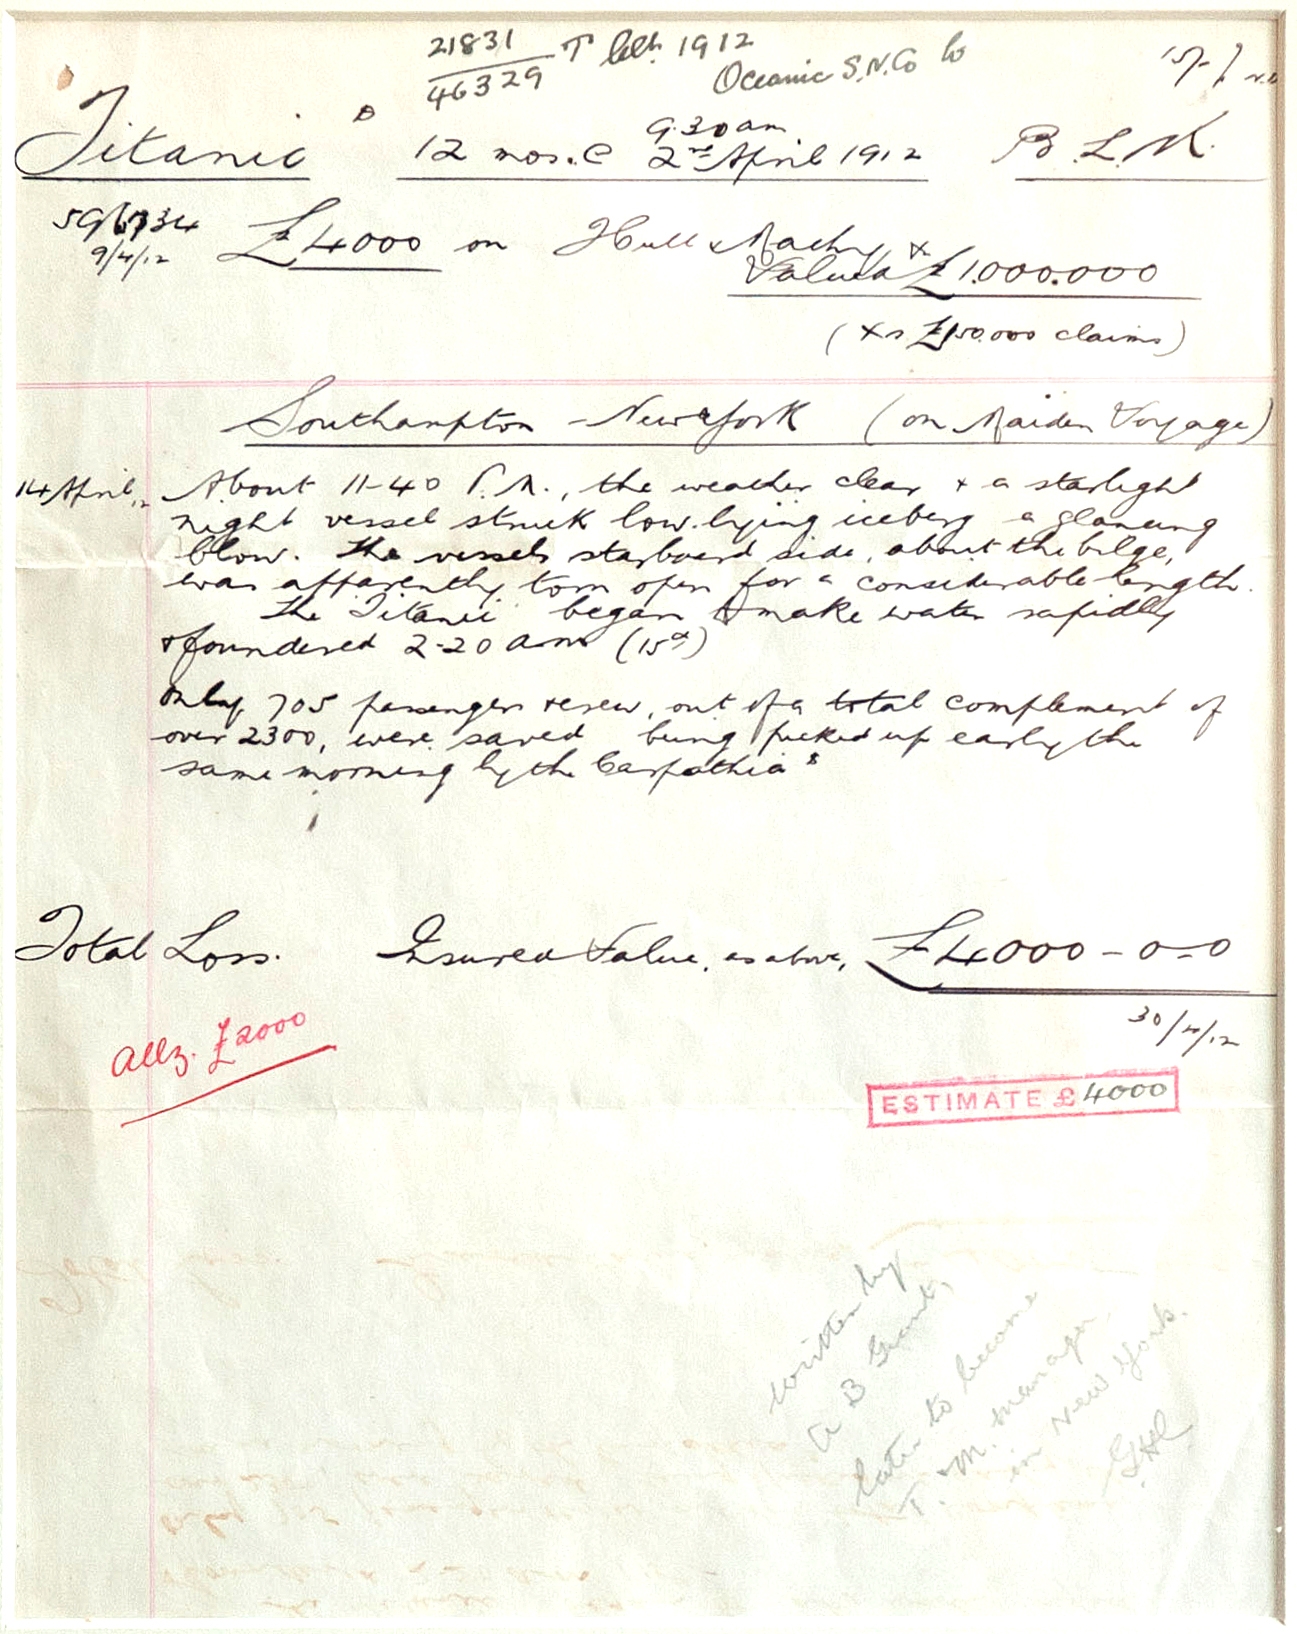 21831
46329 T 1912
Oceanic S.N.Co Lo
Titanic 12 mos. @ 9.30 am 2nd April 1912 B.L.K.
9/4/12 £4000 on Hull & Machy &
Valued £1.000.000
(xs £150.000 claims)
Southampton - New York (on Maiden Voyage)
14 April 12 About 11-40 P.M., the weather clear & a starlight
night vessel struck low lying iceberg a glancing
blow. The vessels starboard side, about the bilge,
was apparently torn open for a considerable length.
The "Titanic" began to make water rapidly
& foundered 2-20 am (15th)
Only 705 passengers & crew, out of a total complement of
over 2300, were saved being picked up early the
same morning by the "Carpathia"
Total Loss. Insured Value, as above, £4000-0-0
30/4/12
allz. £2000
ESTIMATE £4000
written by
A B Grant,
later to become
T. & M. manager
in New York.
GHL